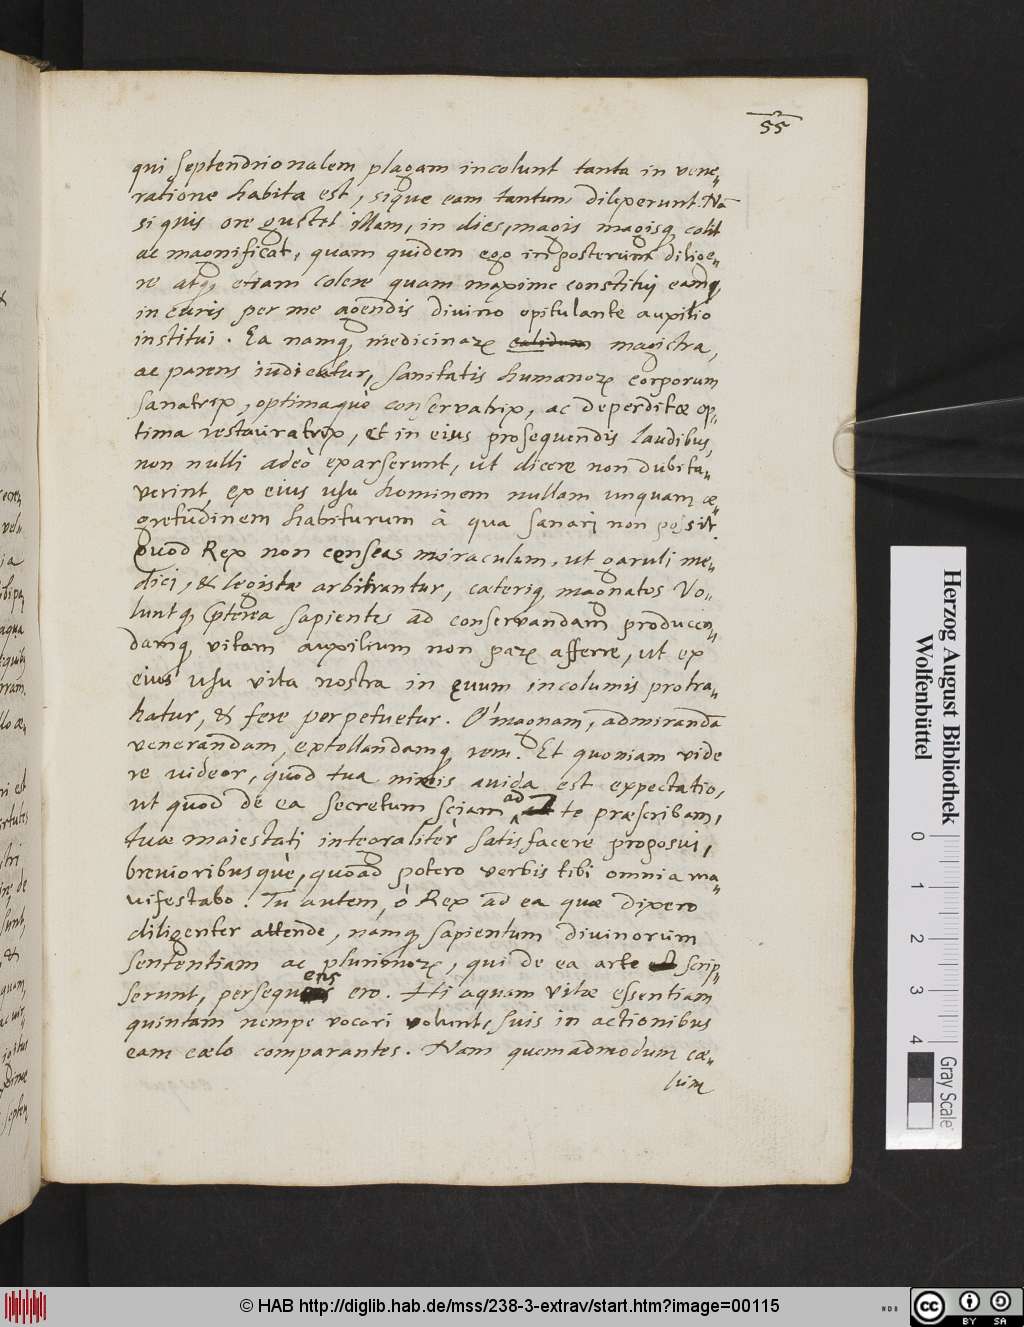 55
qui septendrionalem plagam incolunt tanta in vene„
ratione habita est, sique eam tantum dilexerunt. Nā
si quis ore gustet illam, in dies, magis magisq colit
ac magnificat, quam quidem ego in posterum dilige„
re atq etiam colere quam maxime constitui eamq
in curis per me agendis divino opitulante auxilio
institui. Ea namq medicinarꝝ calidum magistra,
ac parens iudicatur, sanitatis humanorꝝ corporum
sanatrix, optimaquè conservatrix, ac deperditæ op„
tima restauratrix, et in eius prosequendis laudibus,
non nulli adeò exarserunt, ut dicere non dubita„
verint, ex eius usu hominem nullam unquam æ„
gretudinem habiturum à qua sanari non possit.
Quod Rex non censeas miraculum, ut garuli me„
dici, & legistæ arbitrantur, cæteriq magnates Vo„
luntq Ꝓterea sapientes ad conservandam producen„
damq vitam auxilium non parꝝ afferre, ut ex
eius usu vita nostra in ęvum incolumis protra„
hatur, & fere perpetuetur. O' magnam, admirandā
venerandam, extollandamq rem. Et quoniam vide
re videor, quod tua nimis avida est expectatio,
ut quod de ea secretum sciam ad te præscribam,
tuæ maiestati integraliter satisfacere proposui,
brevioribusquè, quoad potero verbis tibi omnia ma„
nifestabo. Tu autem, ô Rex ad ea quæ dixero
diligenter attende, namq sapientum divinorum
sententiam ac plurimorꝝ, qui de ea arte scrip„
serunt, persequens ero. Hi aquam vitæ essentiam
quintam nempe vocari volunt, suis in actionibus
eam cælo comparantes. Nam quemadmodum cæ„
lum
Herzog August Bibliothek
Wolfenbüttel
0 1 2 3 4
Gray Scale
© HAB http://diglib.hab.de/mss/238-3-extrav/start.htm?image=00115
cc BY SA